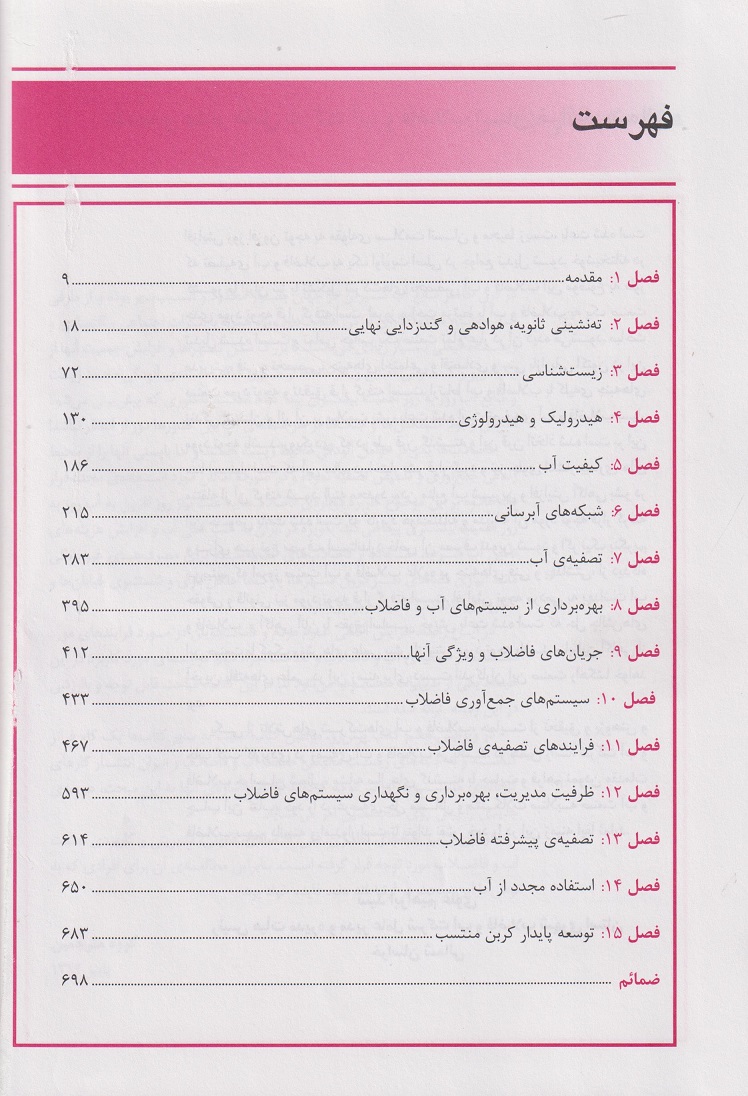 فهرست
فصل ۱: مقدمه ۹
فصل ۲: ته‌نشینی ثانویه، هوادهی و گندزدایی نهایی ۱۸
فصل ۳: زیست‌شناسی ۷۲
فصل ۴: هیدرولیک و هیدرولوژی ۱۳۰
فصل ۵: کیفیت آب ۱۸۶
فصل ۶: شبکه‌های آبرسانی ۲۱۵
فصل ۷: تصفیه‌ی آب ۲۸۳
فصل ۸: بهره‌برداری از سیستم‌های آب و فاضلاب ۳۹۵
فصل ۹: جریان‌های فاضلاب و ویژگی آنها ۴۱۲
فصل ۱۰: سیستم‌های جمع‌آوری فاضلاب ۴۳۳
فصل ۱۱: فرایندهای تصفیه‌ی فاضلاب ۴۶۷
فصل ۱۲: ظرفیت مدیریت، بهره‌برداری و نگهداری سیستم‌های فاضلاب ۵۹۳
فصل ۱۳: تصفیه‌ی پیشرفته فاضلاب ۶۱۴
فصل ۱۴: استفاده مجدد از آب ۶۵۰
فصل ۱۵: توسعه پایدار کربن منتسب ۶۸۳
ضمائم ۶۹۸